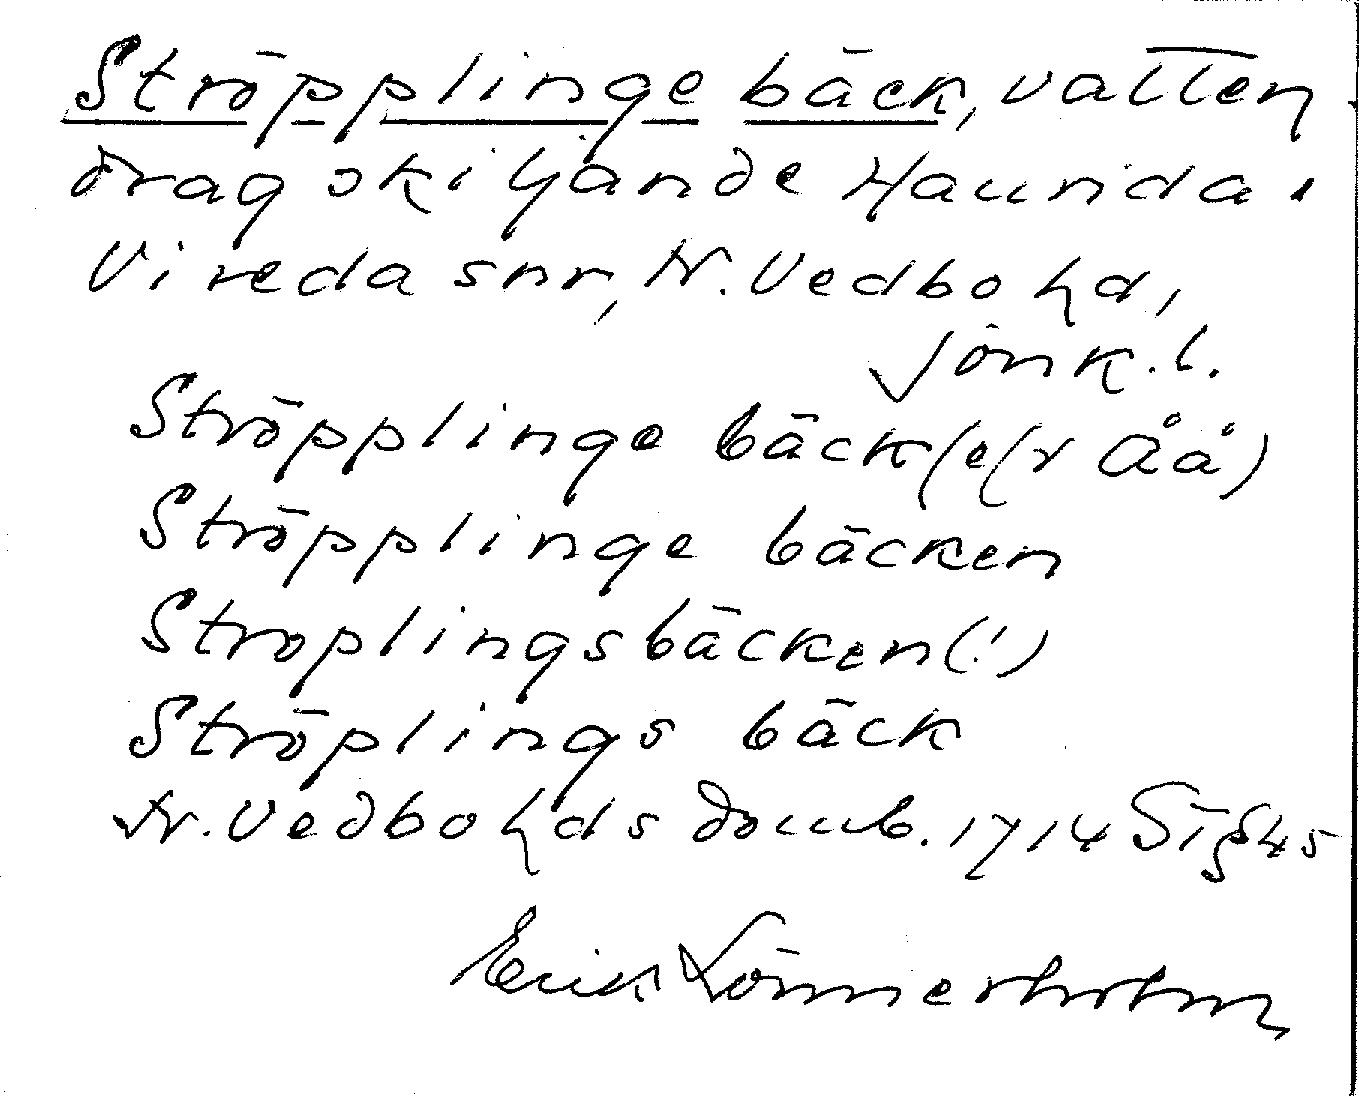 Ströpplinge bäck, vatten-
drag skiljande Haurida-
Vireda snr, N. Vedbo hd,
Jönk. l.
Ströpplinge bäck (e(r Åå)
Ströpplinge bäcken
Stroplingsbäcken (!)
Ströplings bäck
N. Vedbo hds domb. 1714 St § 45
Erick Lönnerholm